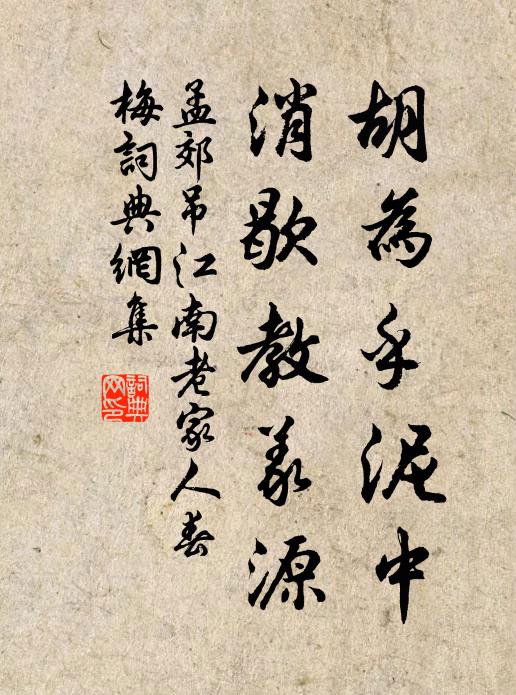 胡為乎泥中
消歇教義源
孟郊吊江南老家人春
梅詞典網集
詞典
网印